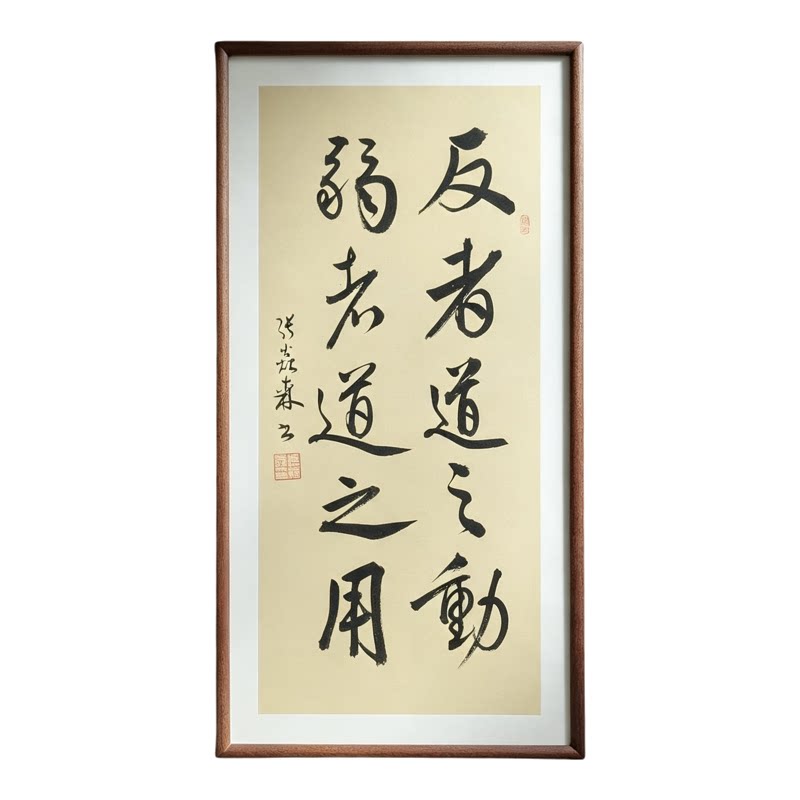 反者道之動
弱者道之用
張焱森书